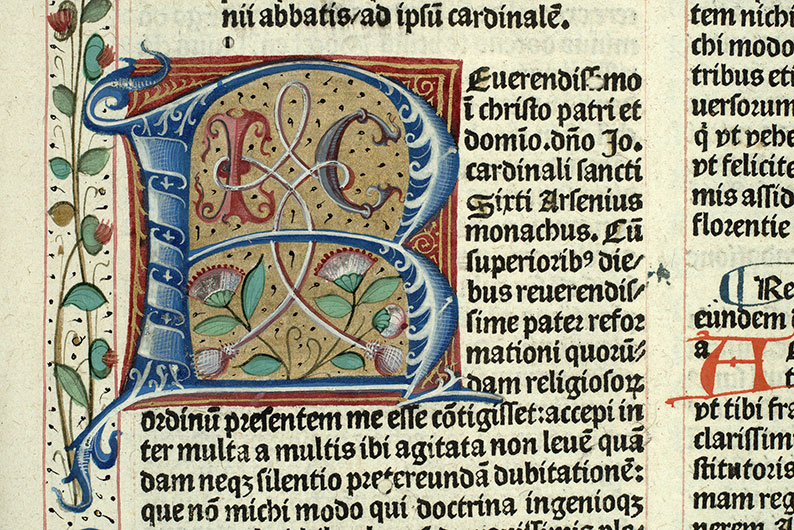 nii abbatis/ad ipſū cardinalē.
I C
REuerendiſſmo
ī chriſto patri et
domīo.dn̄o Jo.
cardinali ſancti
Sixti Arſenius
monachus. Cū
ſuperioribꝰ die/
bus reuerendiſ/
ſime pater refor
mationi quorū/
dam religioſoꝝ
ordinū preſentem me eſſe cōtigiſſet:accepi in
ter multa a multis ibi agitata non leuē quā
dam neqꝫ ſilentio pretereundā dubitationē:
que nō michi modo qui doctrina ingenioqꝫ
tem nichi
chi modo
tribus eti
uerſorum
q̄ vt vehe
vt felicite
mis aſſid
florentie
Re
eundem d
a A
t
vt tibi fra
clariſſimi
ſtitutoris
mam reg